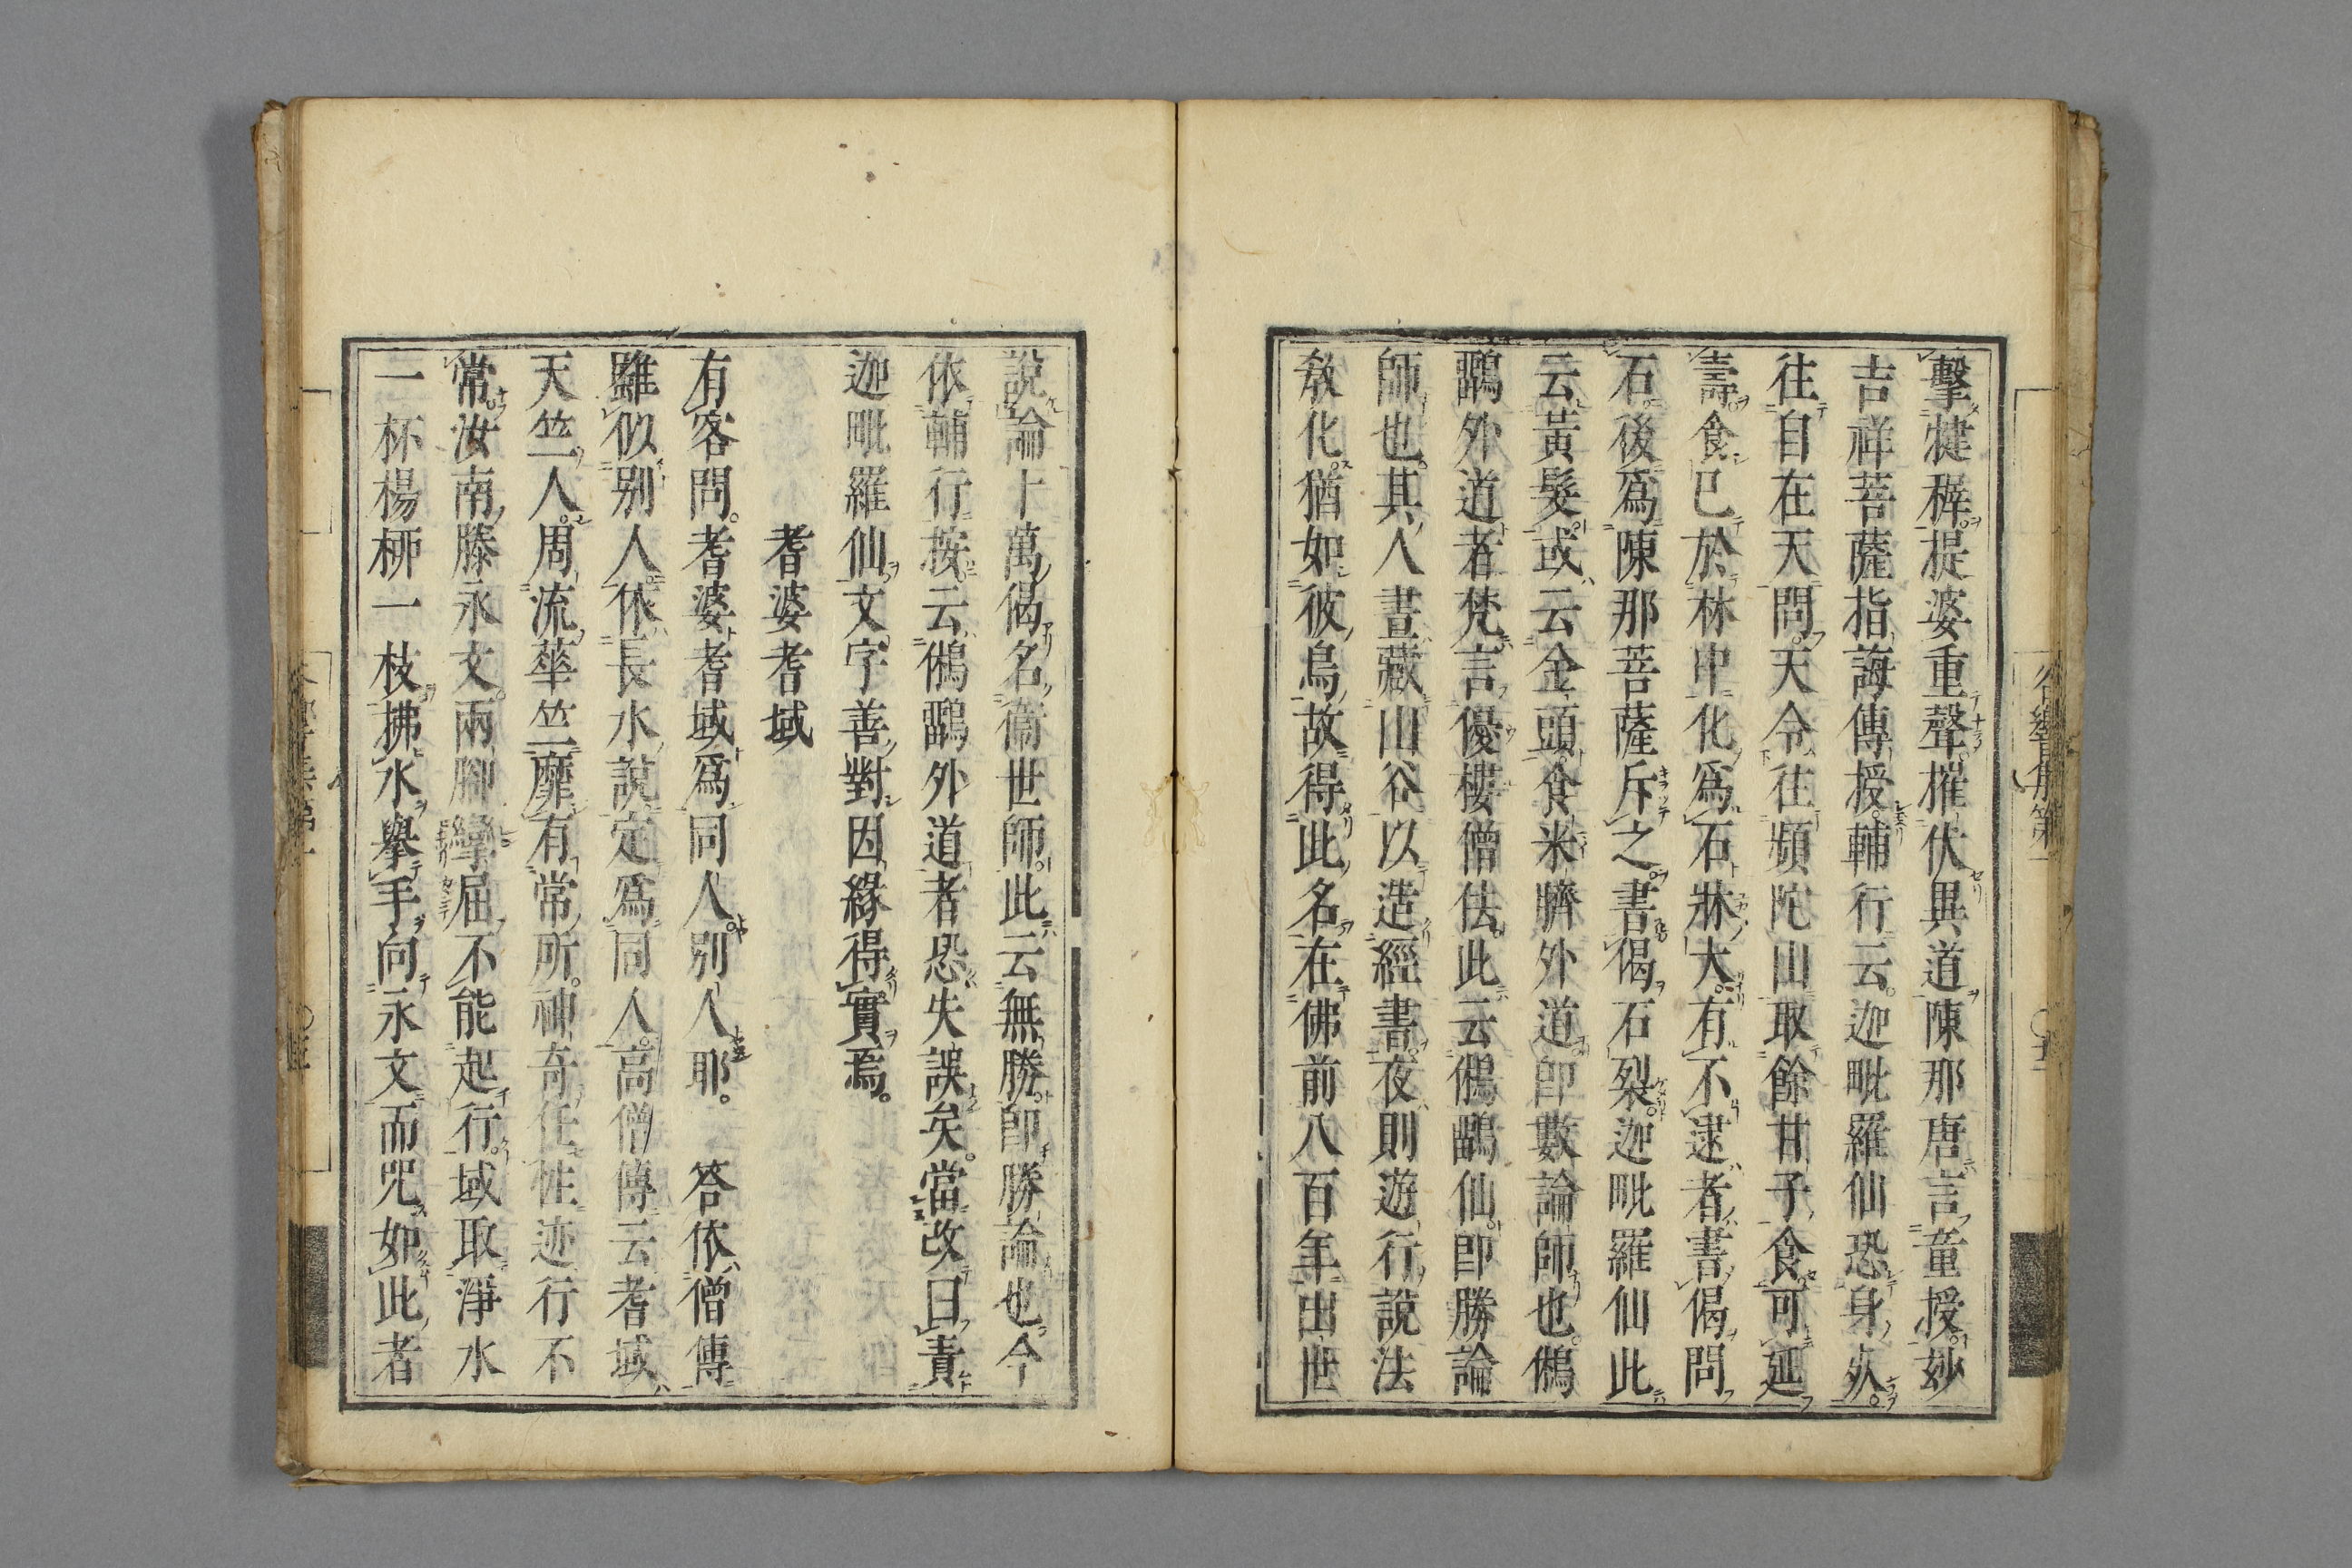 擊犍稚提婆重聲摧伏異道陳那唐言童授妙
吉祥菩薩指誨傳授輔行云迦毗羅仙恐身死
往自在天問天令往頻陀山取餘甘子食可延
壽食已於林中化爲石牀大有不逮者書偈問
石後爲陳那菩薩斥之書偈石裂迦毗羅仙此
云黃髮或云金頭食米臍外道卽數論師也鵂
鶹外道者梵言優樓僧佉此云鵂鶹仙卽勝論
師也其人晝藏山谷以造經書夜則遊行說法
敎化猶如彼鳥故得此名在佛前八百年出世
說論十萬偈名衞世師此云無勝卽勝論也今
依輔行按云鵂鶹外道者恐失誤矣當改曰責
迦毗羅仙文字善對因緣得實焉
耆婆耆域
有客問耆婆耆域爲同人別人耶 答依僧傳
雖似別人依長水說定爲同人高僧傳云耆域
天竺人周流華竺靡有常所神奇任性迹行不
常汝南滕永文兩腳攣屈不能起行域取淨水
一杯楊柳一枝拂水擧手向永文而咒如此者